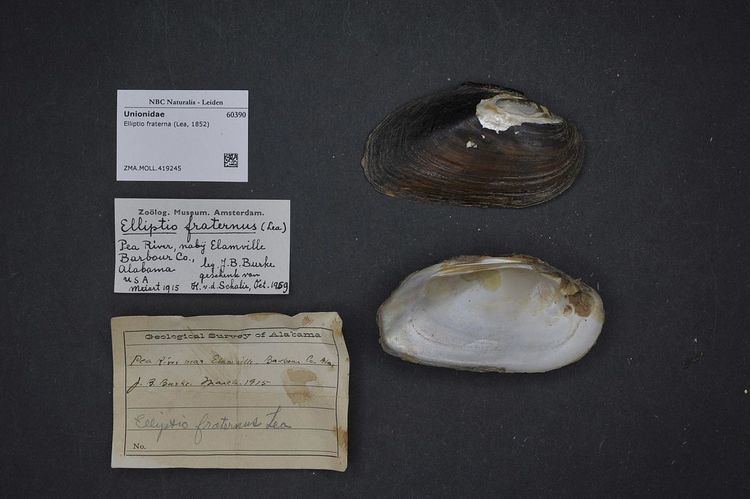 NBC Naturalis - Leiden
Unionidae 60390
Elliptio fraterna (Lea, 1852)
ZMA.MOLL.419245
Zoölog. Museum. Amsterdam.
Elliptio fraternus (Lea)
Pea River, nabij Elamville
Barbour Co., leg J.B. Burke
Alabama geschenk van
USA H. v.d. Schalie, Oct. 1959
Maart 1915
Geological Survey of Alabama
Pea River near Elamville Barbour Co. Ala,
J. B. Burke. March. 1915
Elliptio fraternus Lea
No.